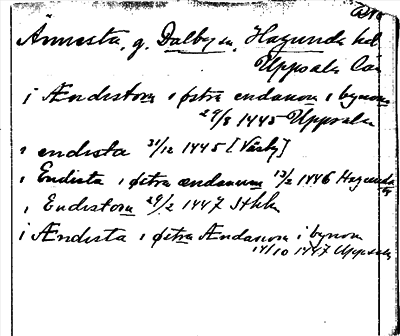 Ännesta, g. Dalby sn, Hagunda hd
Uppsala län
i Ændistom i østra endanom i bynom
29/8 1445 Uppsala
i endista 31/12 1445 [Väsby]
i Endista i østra ændanum 13/2 1446 Hagunda
i Endistom 29/2 1447 Sthlm
i Ændista i østra Ændanom i bynom
14/10 1447 Uppsala